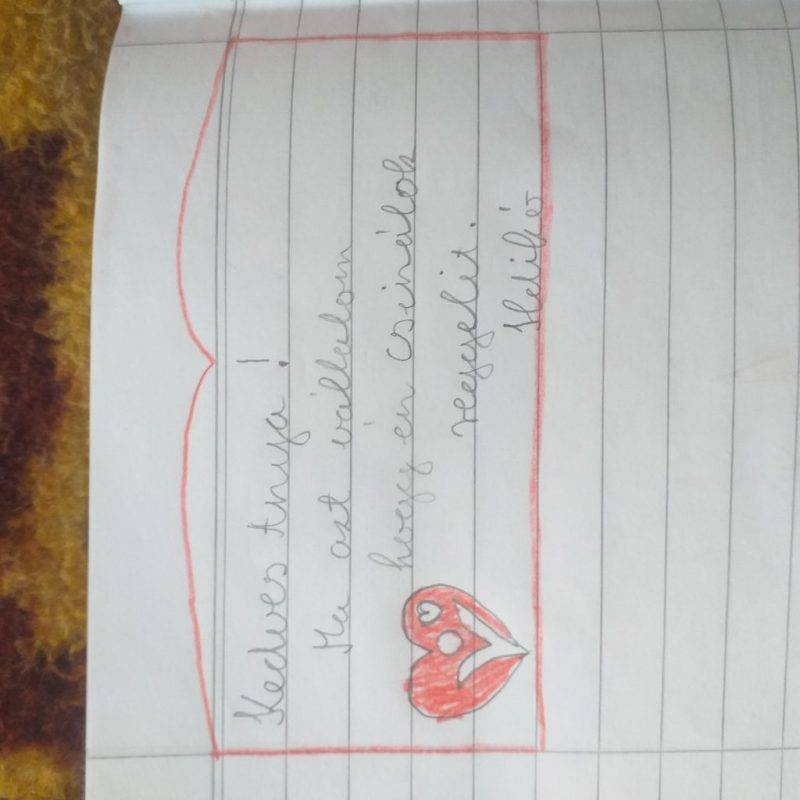 Kedves Anya!
Ma ast vállalom
hogy én csinálok
reggelit.